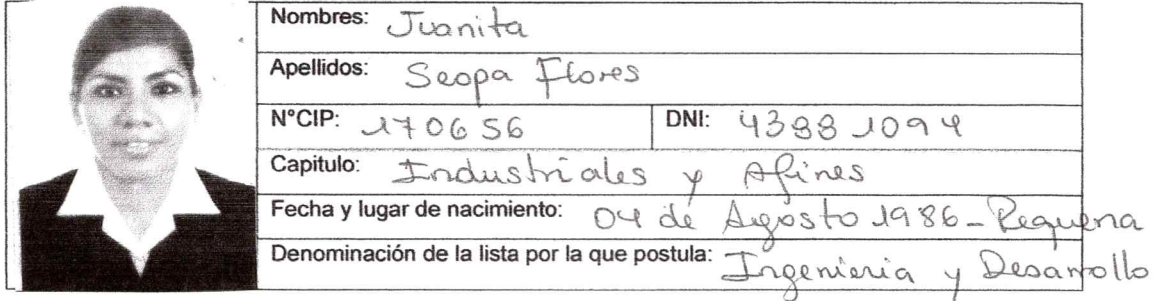 Nombres: Juanita
Apellidos: Seopa Flores
N°CIP: 170656 DNI: 43881094
Capitulo: Industriales y Afines
Fecha y lugar de nacimiento: 04 de Agosto 1986 - Requena
Denominación de la lista por la que postula: Ingenieria y Desarrollo